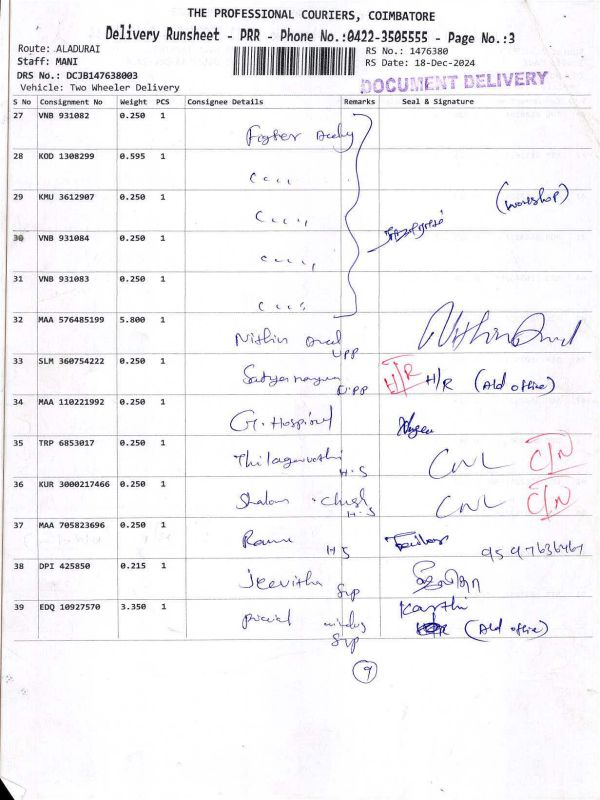 THE PROFESSIONAL COURIERS, COIMBATORE
Delivery Runsheet - PRR - Phone No.:0422-3505555 - Page No.:3
Route: ALADURAI
RS No.: 1476380
Staff: MANI
RS Date: 18-Dec-2024
DRS No.: DCJB147638003
DOCUMENT DELIVERY
Vehicle: Two Wheeler Delivery
S No Consignment No Weight PCS Consignee Details Remarks Seal & Signature
27 VNB 931082 0.250 1
28 KOD 1308299 0.595 1
29 KMU 3612907 0.250 1 (workshop)
30 VNB 931084 0.250 1
31 VNB 931083 0.250 1
32 MAA 576485199 5.800 1 Nithin
33 SLM 360754222 0.250 1 H/R H/R (Old office)
34 MAA 110221992 0.250 1 G. Hospital
35 TRP 6853017 0.250 1 H.S CNL C/N
36 KUR 3000217466 0.250 1 H.S CNL C/N
37 MAA 705823696 0.250 1 H S 9597636467
38 DPI 425850 0.215 1 Jeevitha
39 EDQ 10927570 3.350 1 Karthi
(Old office)
9